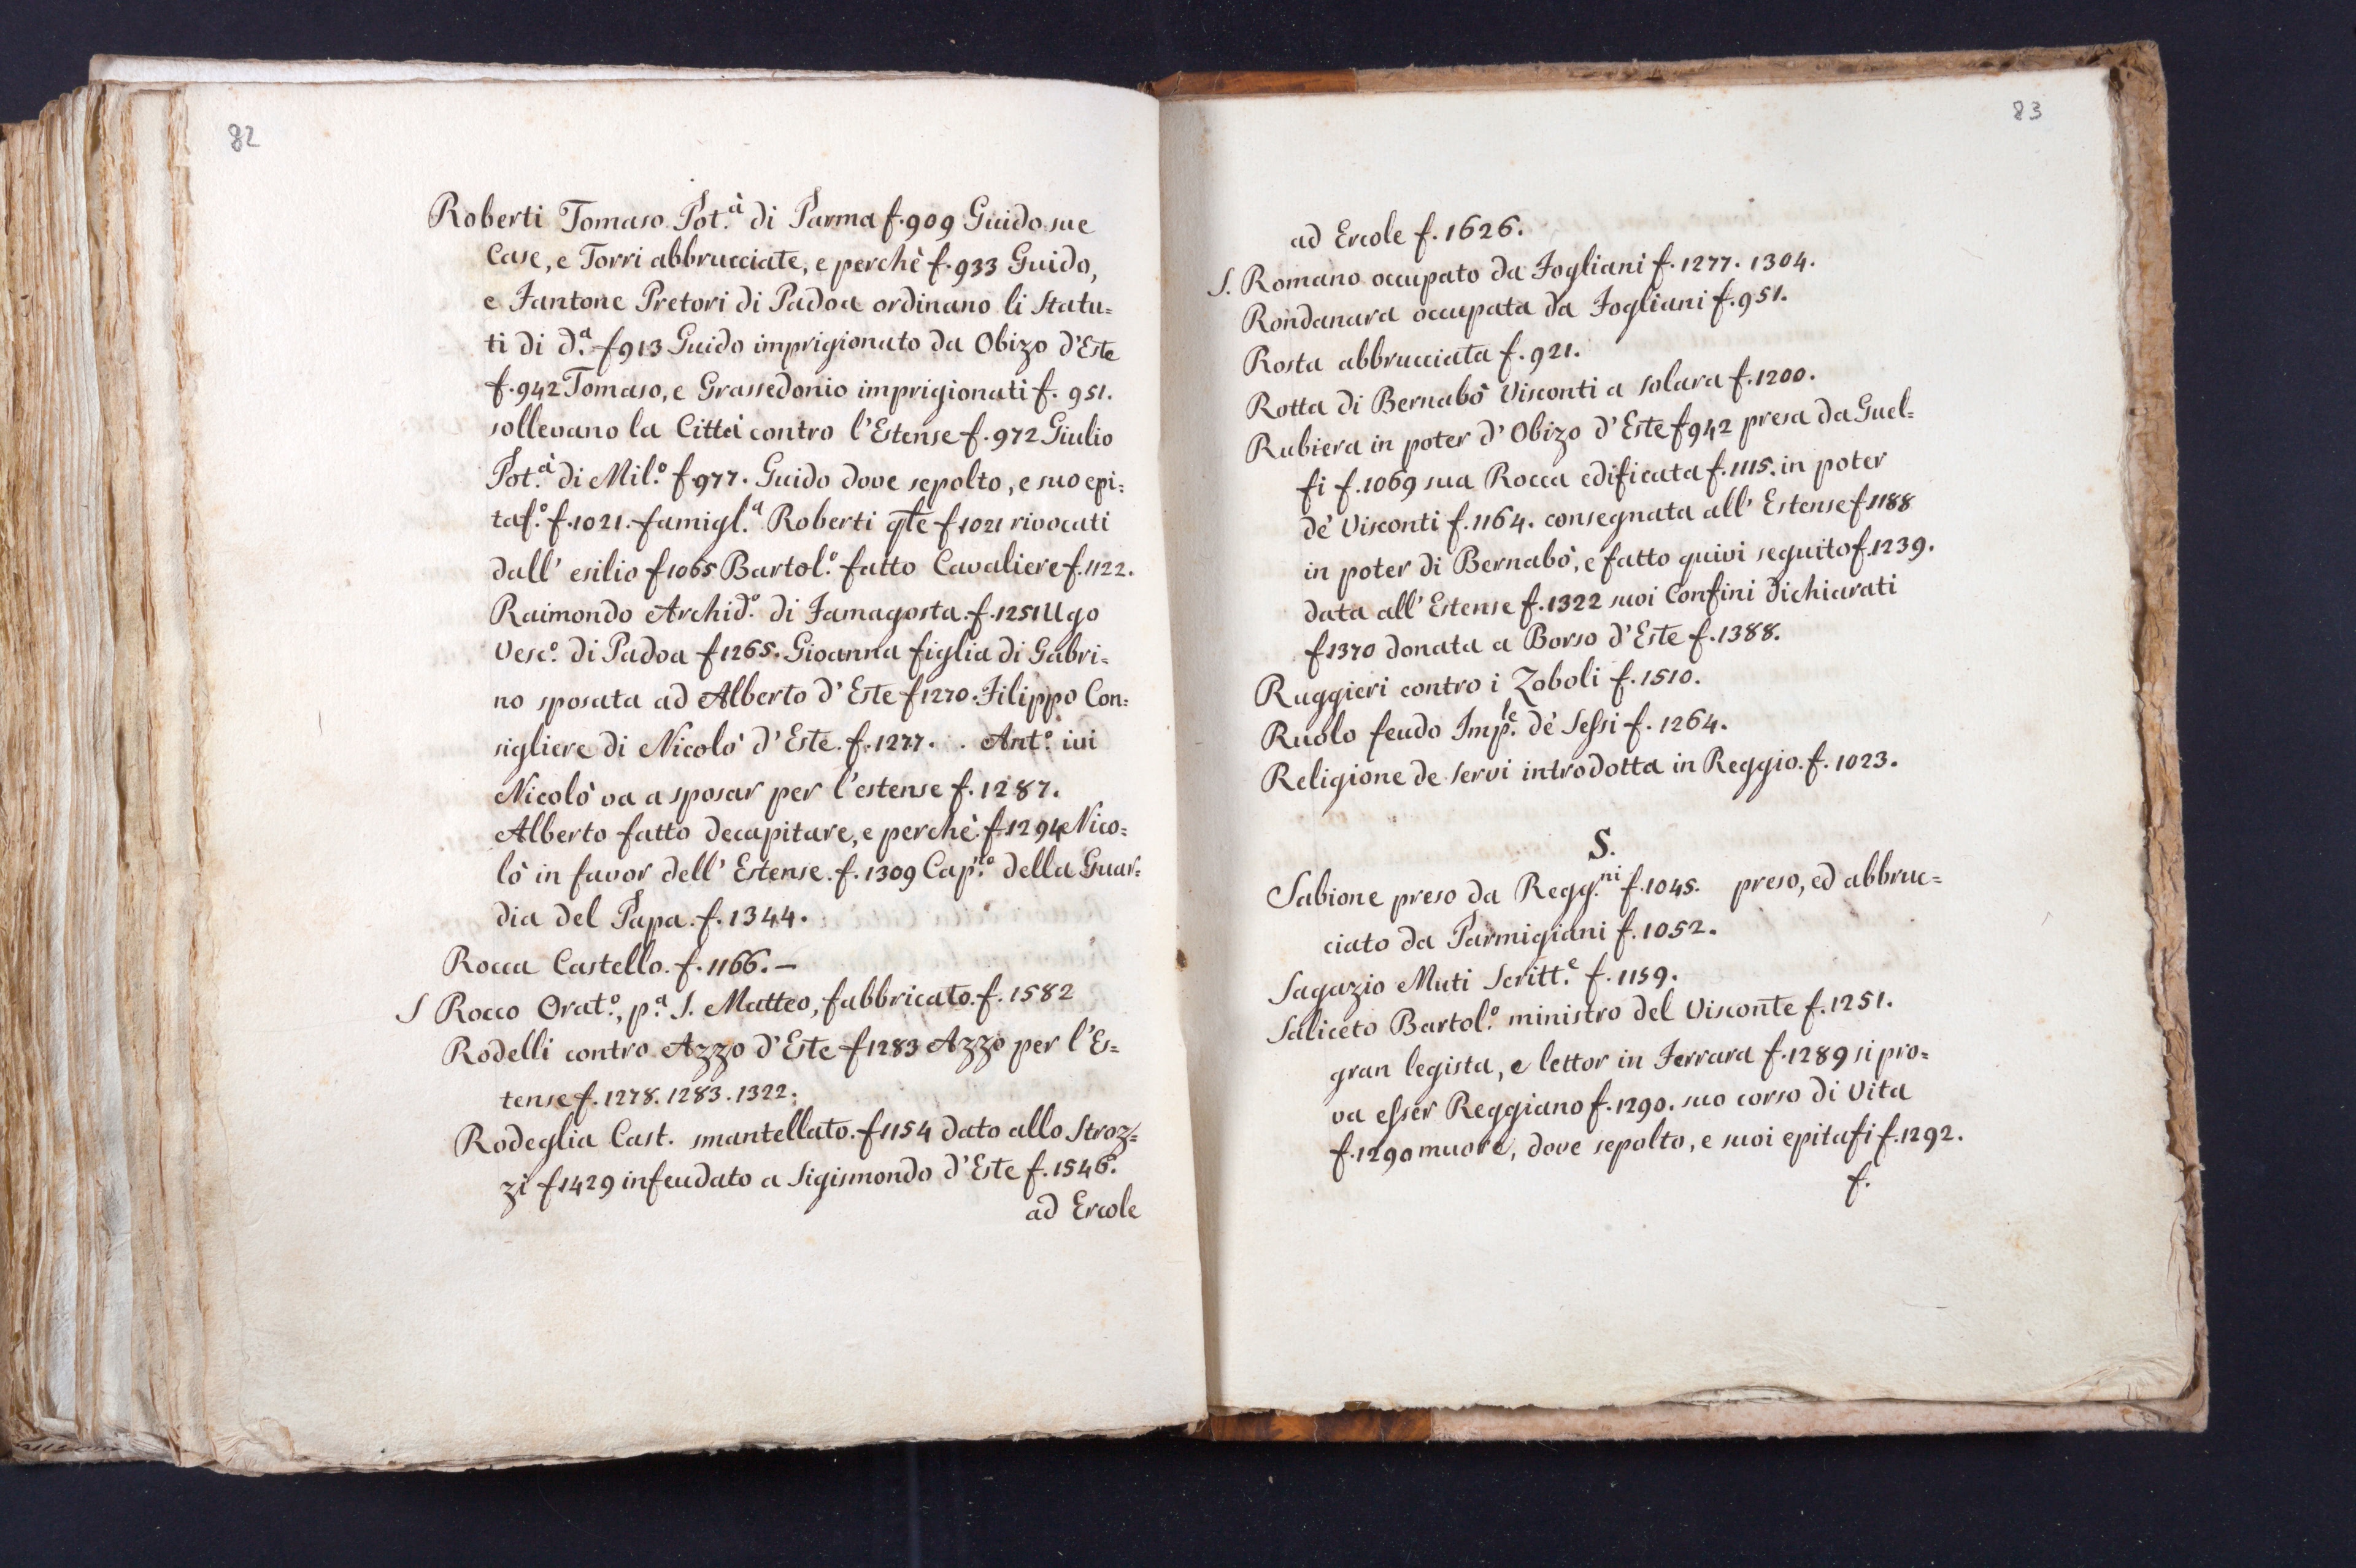 82
Roberti Tomaso Pot.à di Parma f. 909 Guido sue
Case, e Torri abbrucciate, e perchè f. 933 Guido,
e Fantone Pretori di Padoa ordinano li Statu=
ti di d.a f 913 Guido imprigionato da Obizo d'Este
f. 942 Tomaso, e Grassedonio imprigionati f. 951.
sollevano la Città contro l'Estense f. 972 Giulio
Pot.à di Mil.o f. 977. Guido dove sepolto, e suo epi=
taf.o f. 1021. famigl.a Roberti qte f 1021 rivocati
dall' esilio f 1065 Bartol.o fatto Cavaliere f. 1122.
Raimondo Archid.o di Famagosta. f. 1251 Ugo
Vesc.o di Padoa f 1265. Gioanna figlia di Gabri=
no sposata ad Alberto d'Este f 1270. Filippo Con=
sigliere di Nicolò d'Este. f. 1277. . Ant.o ivi
Nicolò va a sposar per l'estense f. 1287.
Alberto fatto decapitare, e perchè f. 1294 Nico=
lò in favor dell' Estense. f. 1309 Cap.no della Guar=
dia del Papa. f. 1344.
Rocca Castello. f. 1166. —
S Rocco Orat.o, p.a S. Matteo, fabbricato. f. 1582
Rodelli contro Azzo d'Este f 1283 Azzo per l'Es=
tense f. 1278. 1283. 1322.
Rodeglia Cast. smantellato. f 1154 dato allo Stroz=
zi f 1429 infeudato a Sigismondo d'Este f. 1546.
ad Ercole
83
ad Ercole f. 1626.
S. Romano occupato da Fogliani f. 1277. 1304.
Rondanara occupata da Fogliani f. 951.
Rosta abbrucciata f. 921.
Rotta di Bernabò Visconti a Solara f. 1200.
Rubiera in poter d'Obizo d'Este f 942 presa da Guel=
fi f. 1069 sua Rocca edificata f. 1115. in poter
de' Visconti f. 1164. consegnata all' Estense f 1188
in poter di Bernabò, e fatto quivi seguito f. 1239.
data all' Estense f. 1322 suoi Confini dichiarati
f 1370 donata a Borso d'Este f. 1388.
Ruggieri contro i Zoboli f. 1510.
Ruolo feudo Imp.le de' Sessi f. 1264.
Religione de Servi introdotta in Reggio. f. 1023.
S.
Sabione preso da Regg.ni f. 1045. preso, ed abbruc=
ciato da Parmigiani f. 1052.
Sagazio Muti Scritt.e f. 1159.
Saliceto Bartol.o ministro del Visconte f. 1251.
gran legista, e lettor in Ferrara f. 1289 si pro=
va esser Reggiano f. 1290. suo corso di Vita
f. 1290 muore, dove sepolto, e suoi epitafi f. 1292.
f.